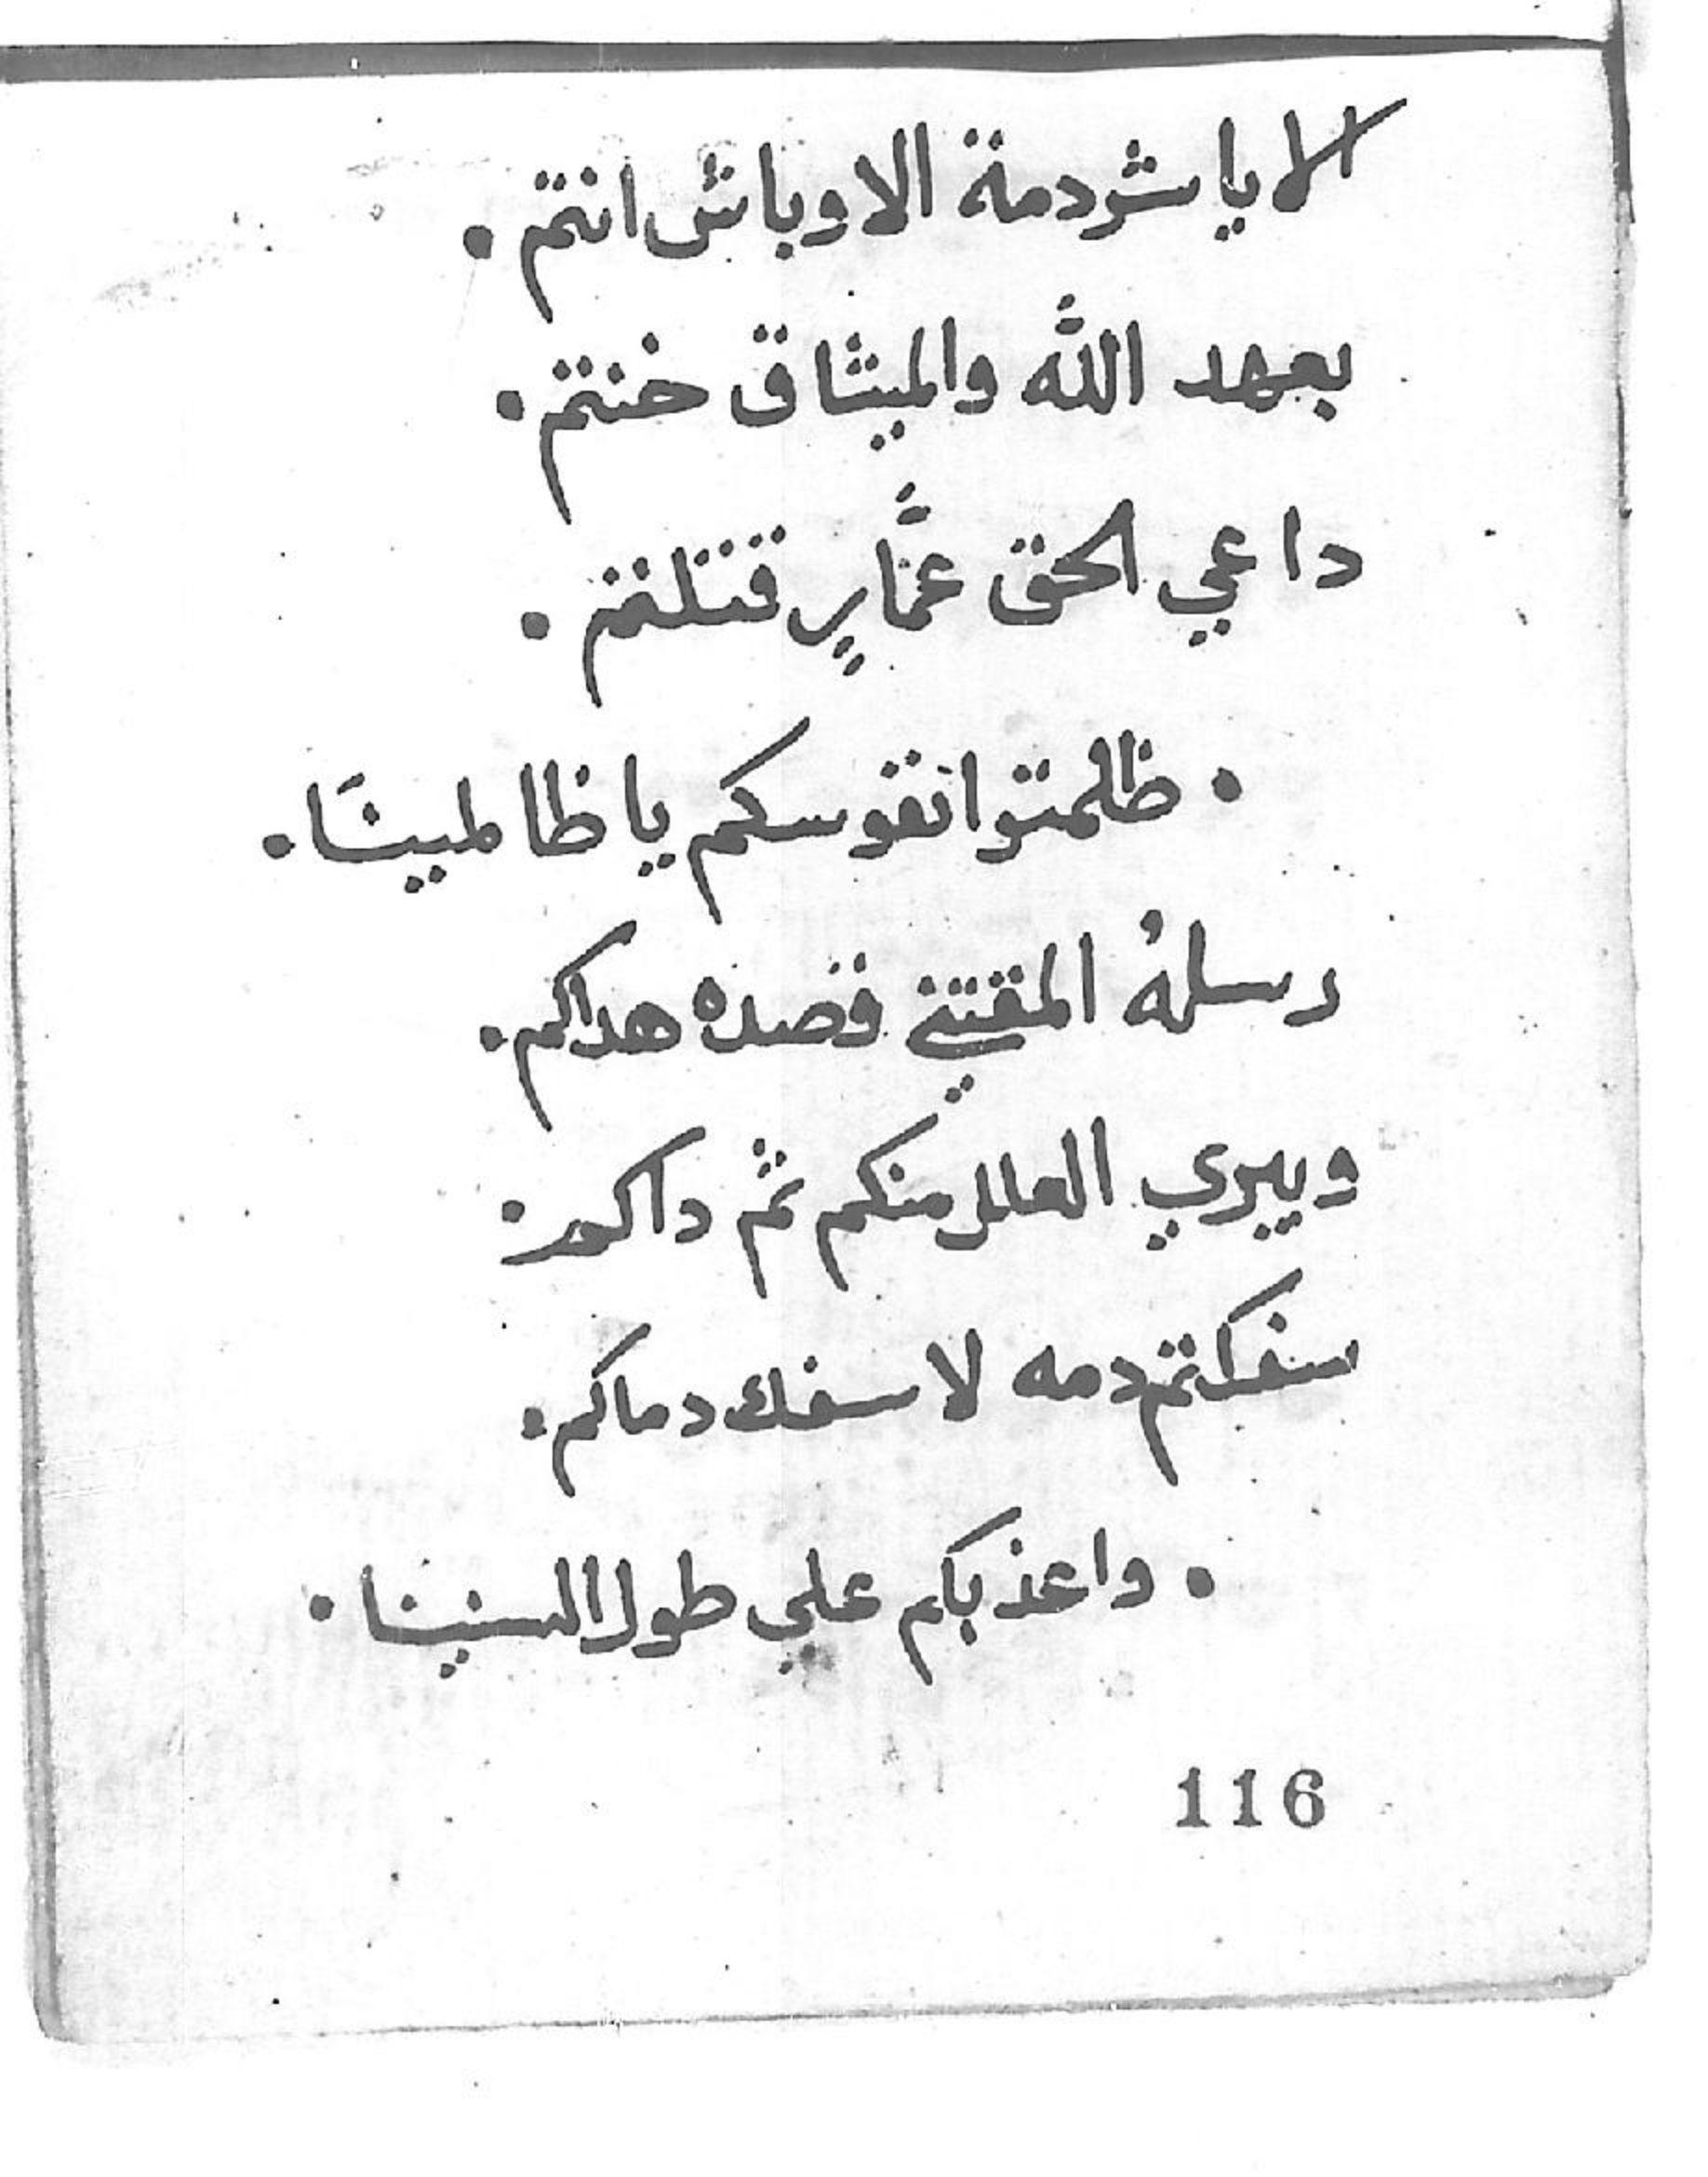 الا يا شردمة الاوباش انتم .
بعهد الله والميثاق خنتم .
داعي الحق عمَّارٍ قتلتم .
. ظلمتوا نفوسكم يا ظالمينَا .
رسلهُ المقتني قصده هداكم .
ويبري العلل منكم ثم داكم .
سفكتم دمه لا سفك دماكم .
. واعذبكم علي طول السنينا .
116